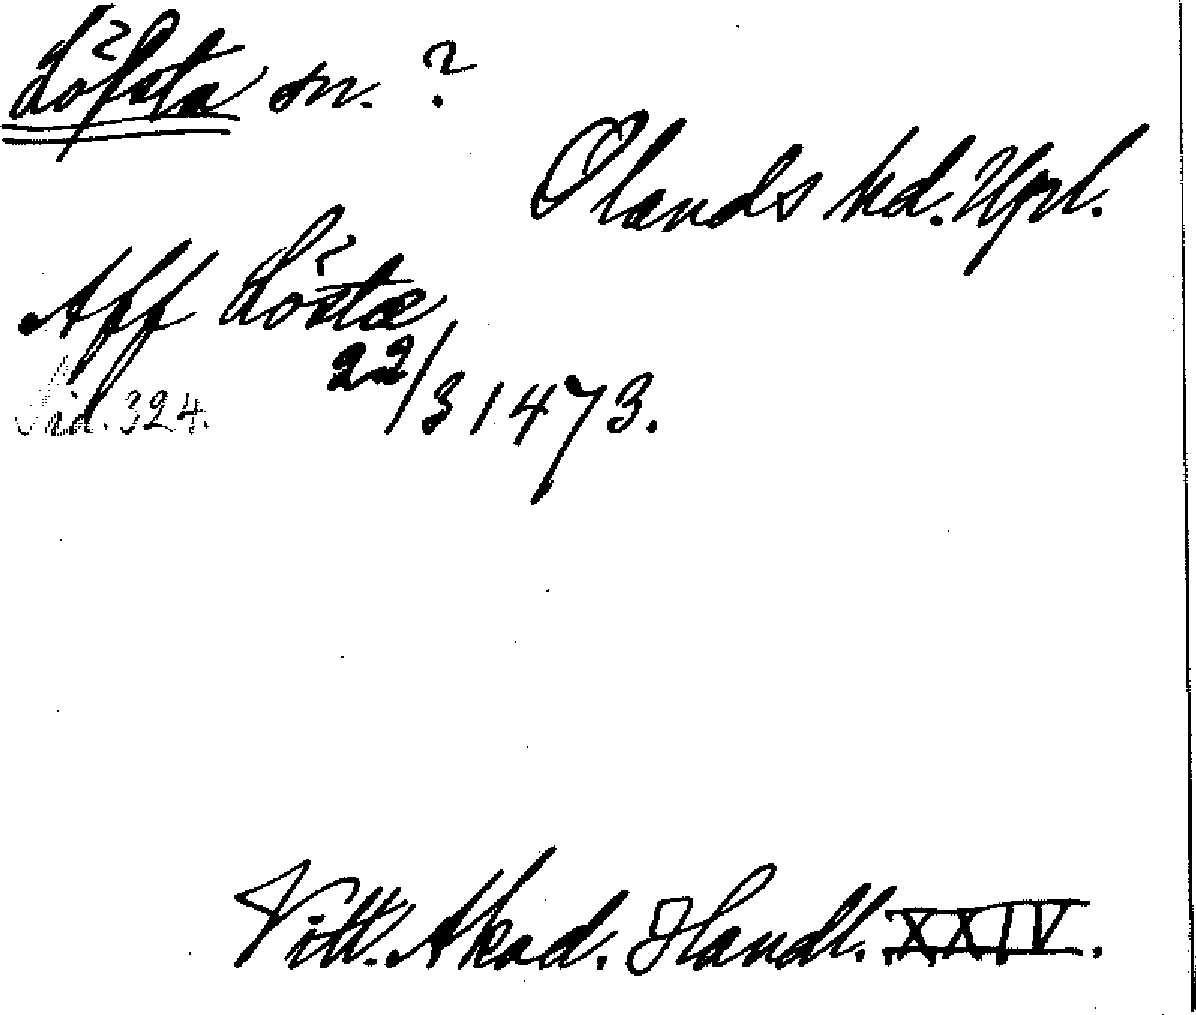 Löfsta sn. ?
Olands hd. Upl.
Aff Löstæ
22/3 1473.
Sid. 324.
Vitt. Akad. Handl. XXIV.